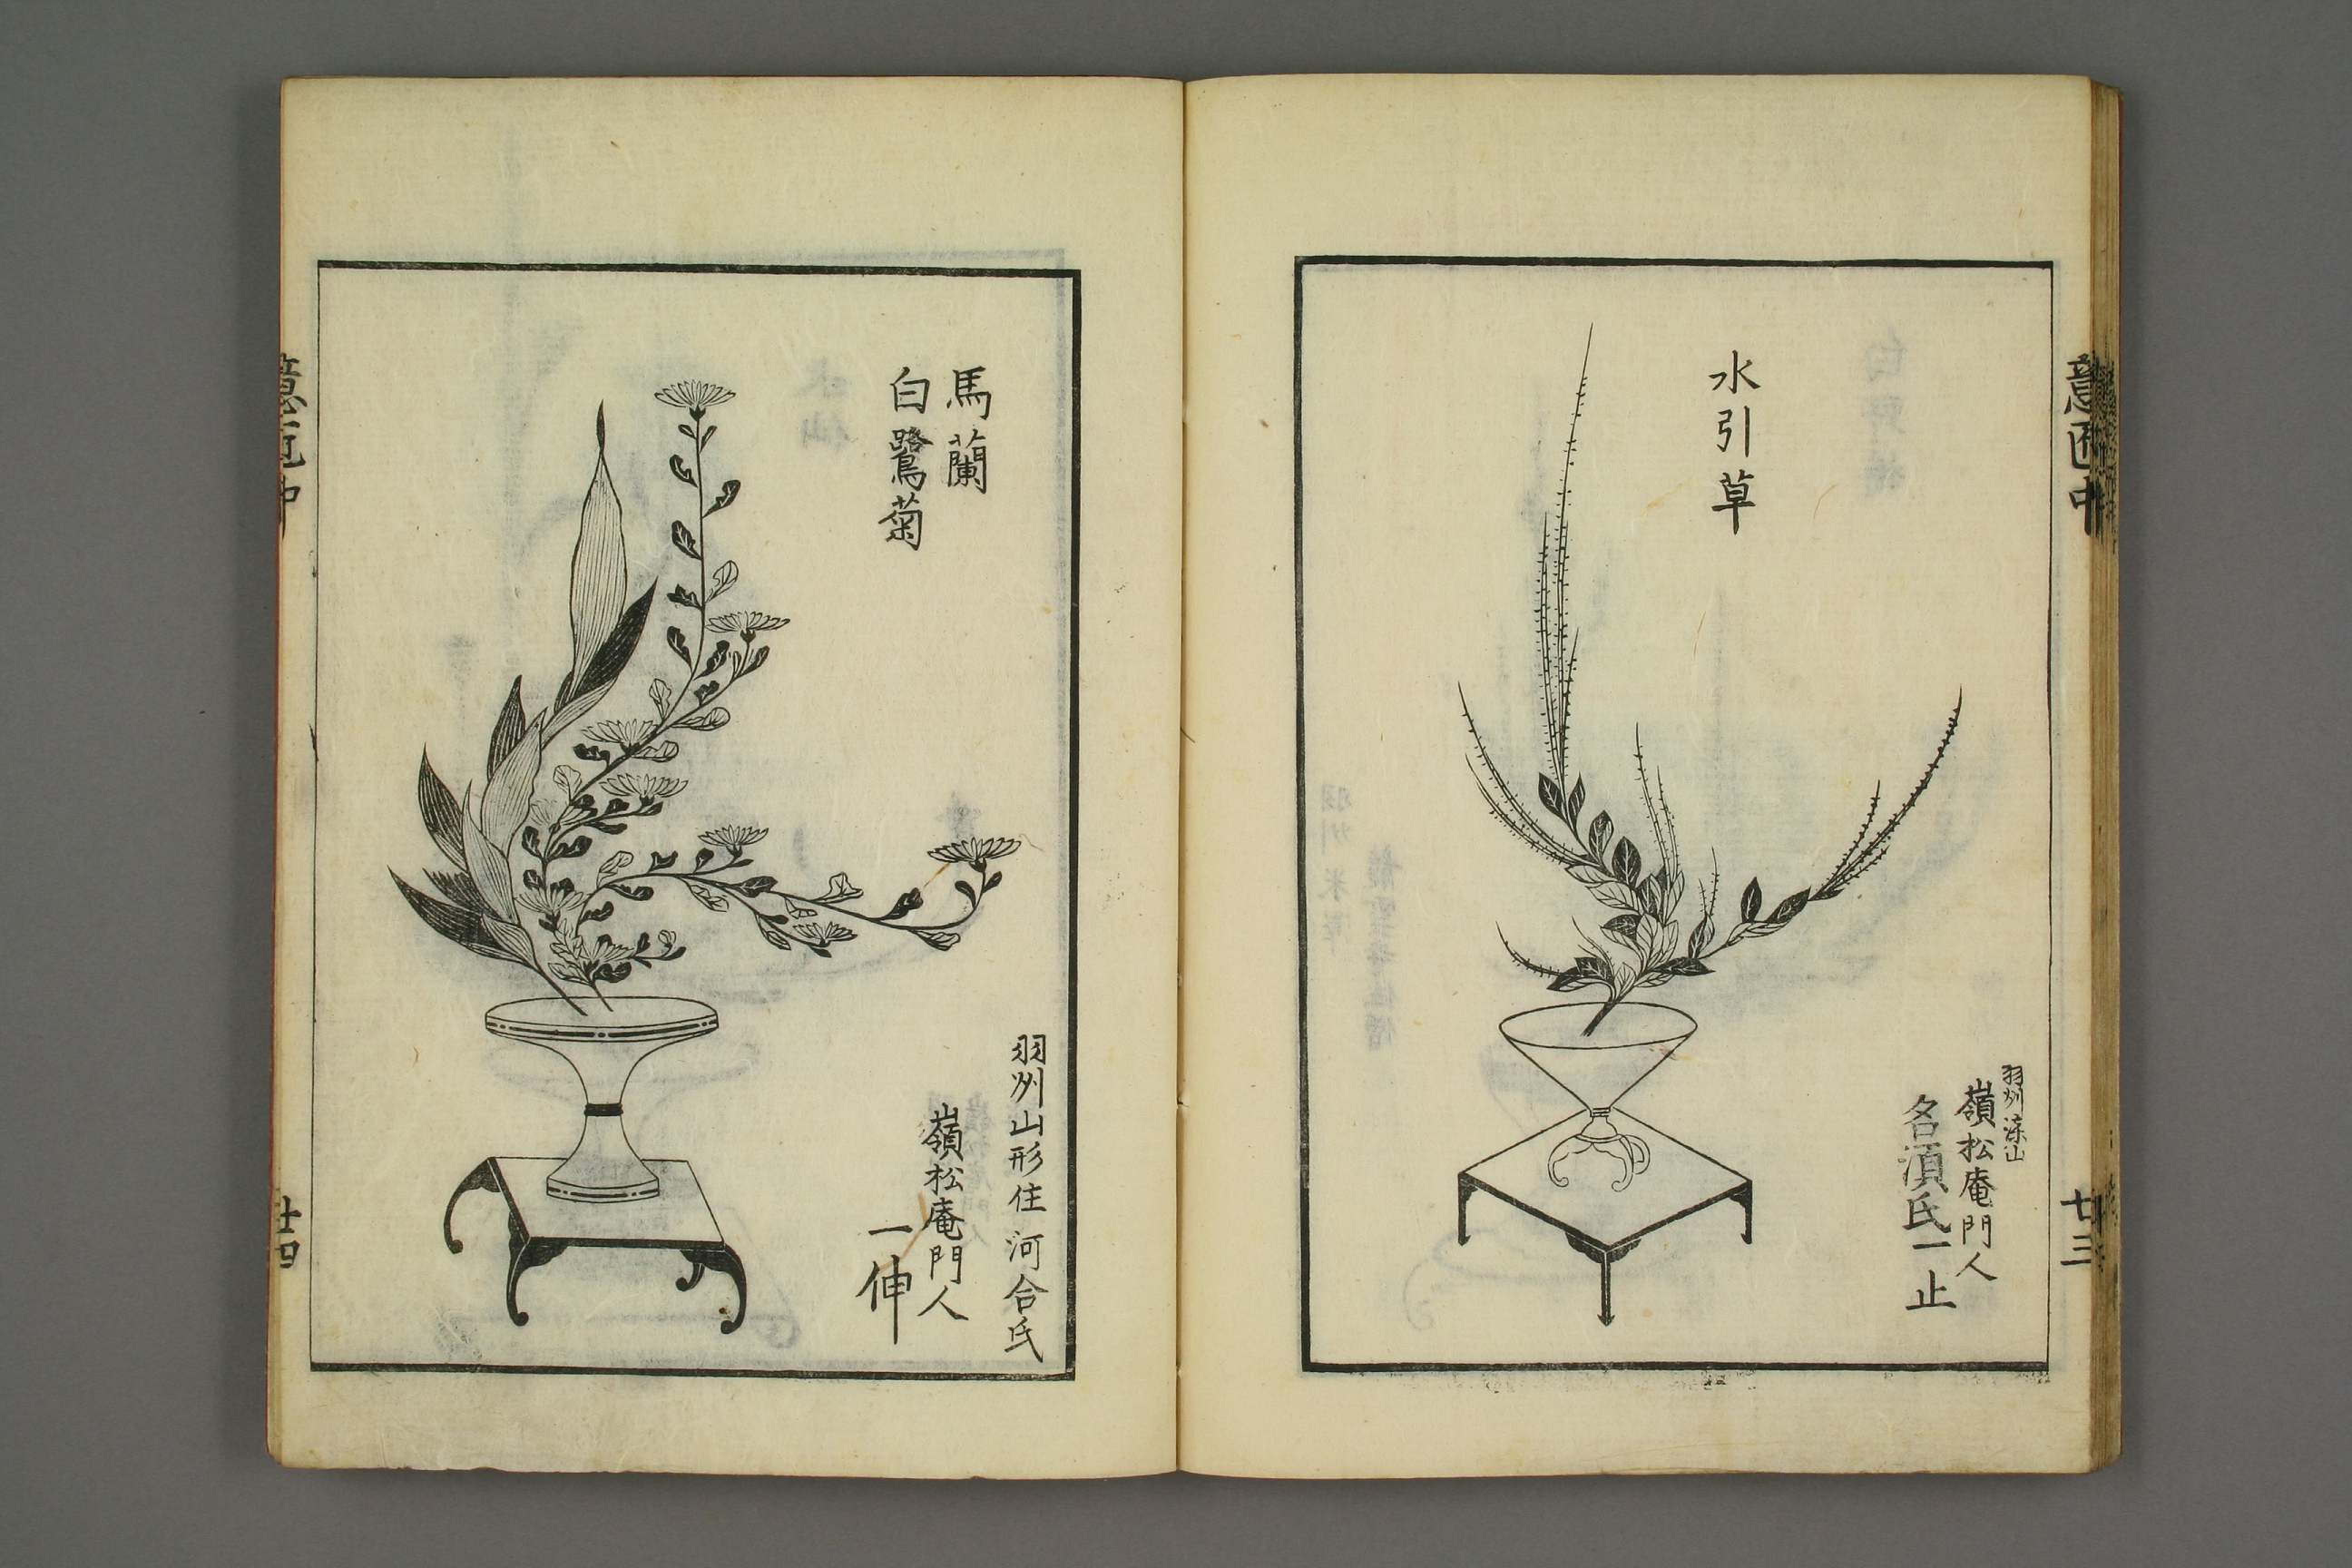 水引草
羽州
嶺松庵門人
名須氏一止
意匠中
廿三
馬蘭
白鷺菊
羽州山形住河合氏
嶺松庵門人
一伸
意匠中
廿四